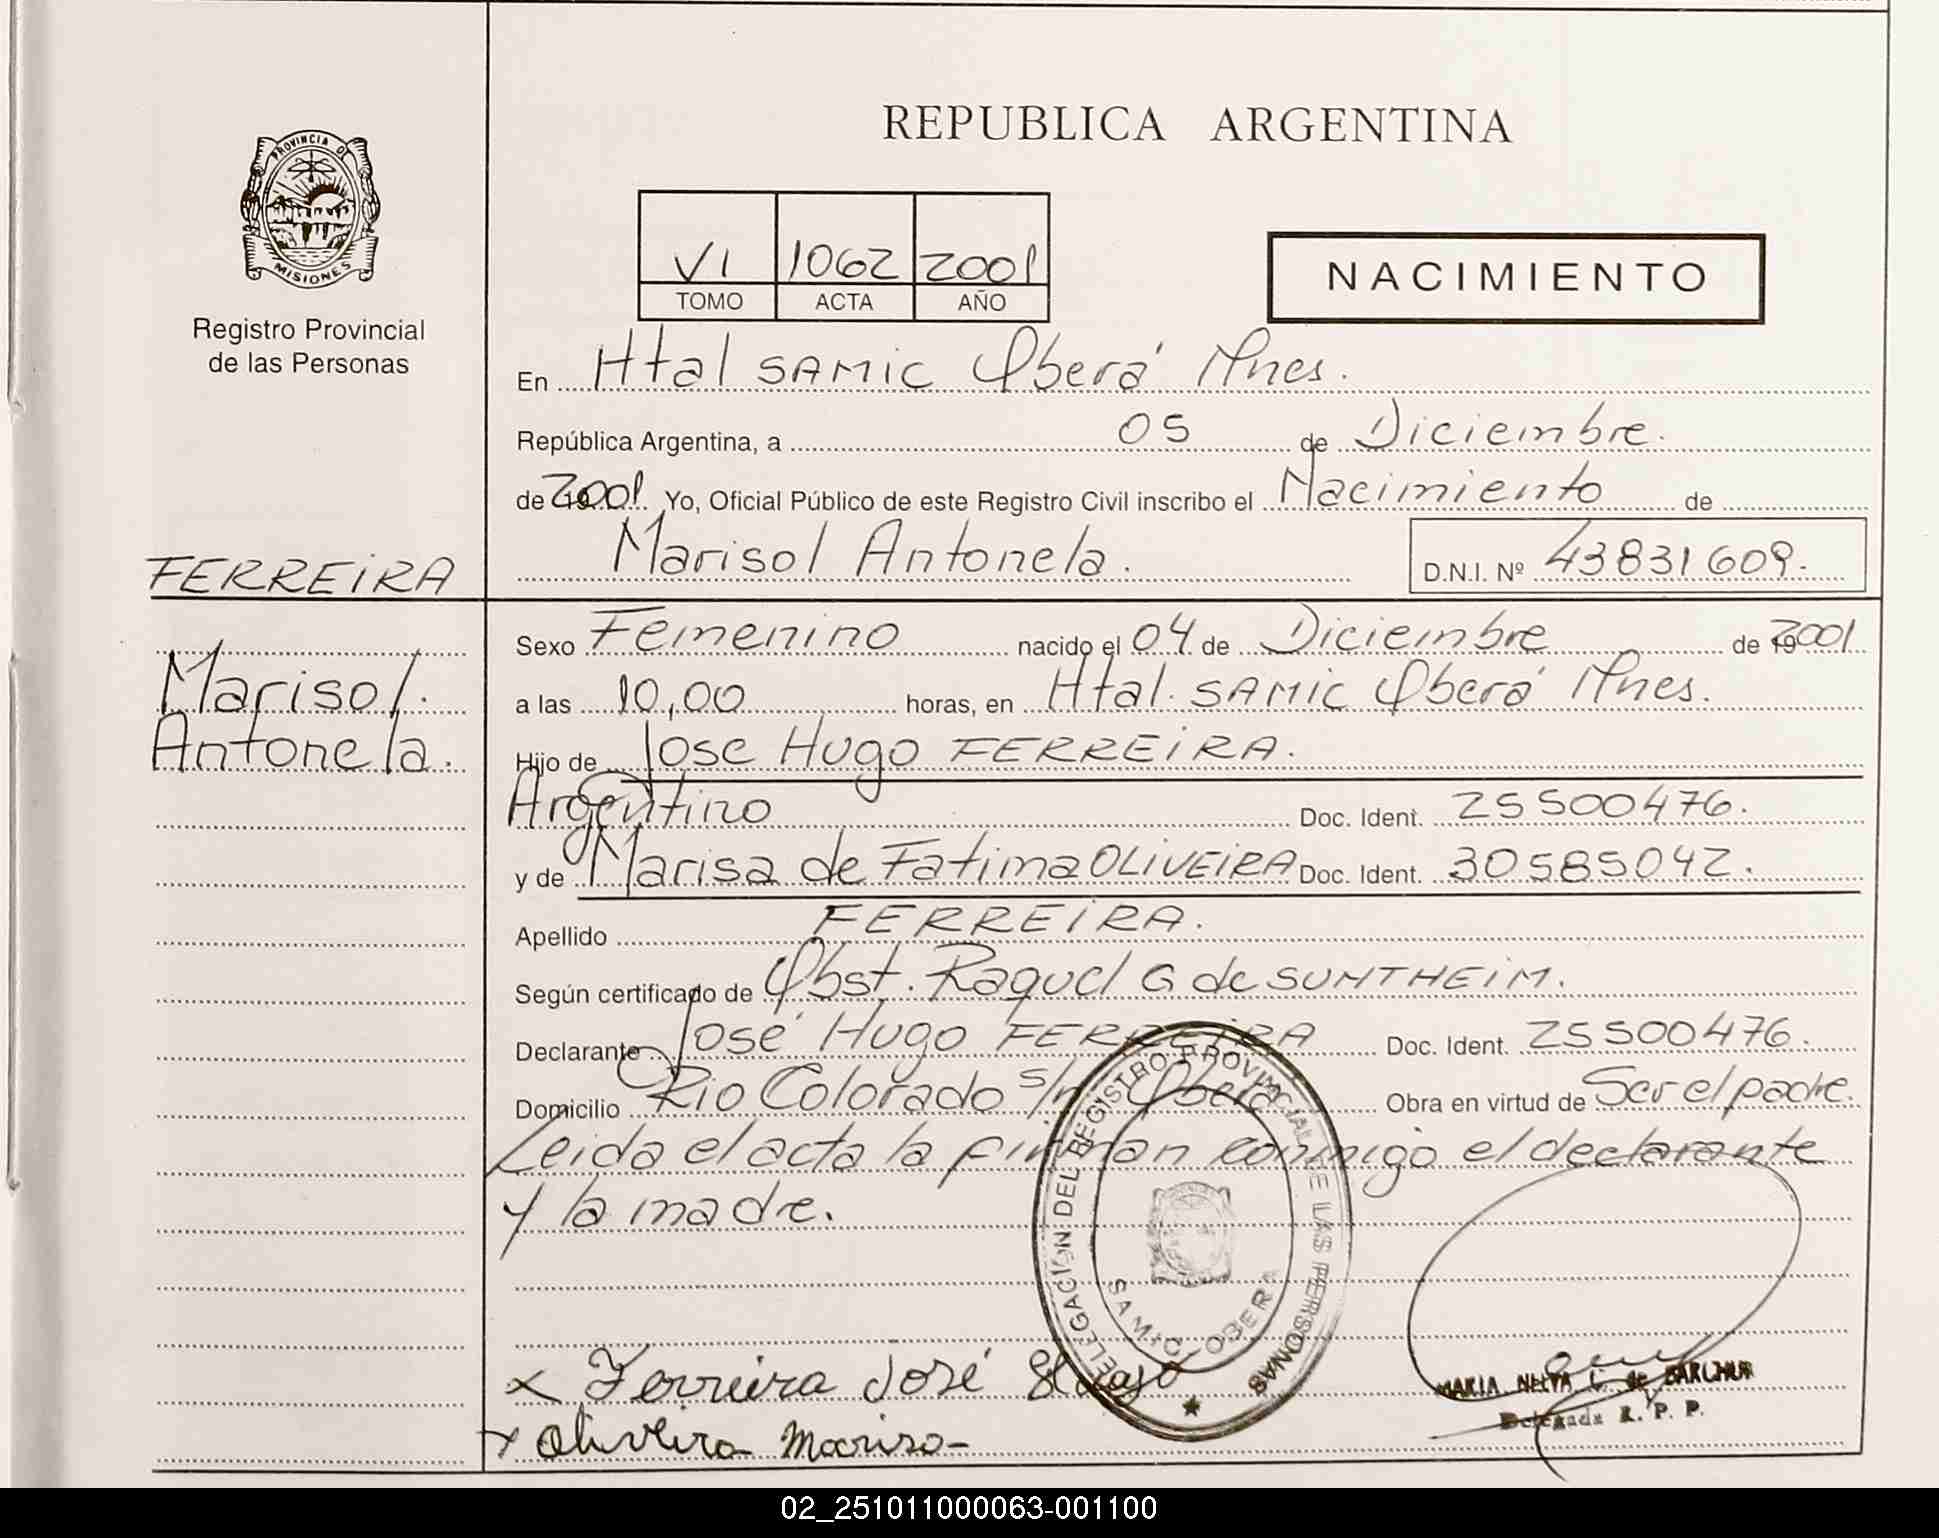 REPUBLICA ARGENTINA
PROVINCIA DE
MISIONES
Registro Provincial
de las Personas
VI 1062 2001
TOMO ACTA AÑO
NACIMIENTO
En Htal SAMIC Oberá Mnes.
República Argentina, a 05 de Diciembre.
de 2001 Yo, Oficial Público de este Registro Civil inscribo el Nacimiento de
Marisol Antonela. D.N.I. Nº 43831609.
FERREIRA
Marisol.
Antonela.
Sexo Femenino nacido el 04 de Diciembre de 2001
a las 10,00 horas, en Htal. SAMIC Oberá Mnes.
Hijo de Jose Hugo FERREIRA.
Argentino Doc. Ident. 25500476.
y de Marisa de Fatima OLIVEIRA Doc. Ident. 30585042.
Apellido FERREIRA.
Según certificado de Obst. Raquel G de SUNTHEIM.
Declarante José Hugo FERREIRA Doc. Ident. 25500476.
Domicilio Rio Colorado s/n Oberá Obra en virtud de Ser el padre.
Leida el acta la firman conmigo el declarante
y la madre.
DELEGACION DEL REGISTRO PROVINCIAL DE LAS PERSONAS
SAMIC - OBERA
x Ferreira José Hugo
x Oliveira Marisa
MARIA
Delegada R. P. P.
02_251011000063-001100